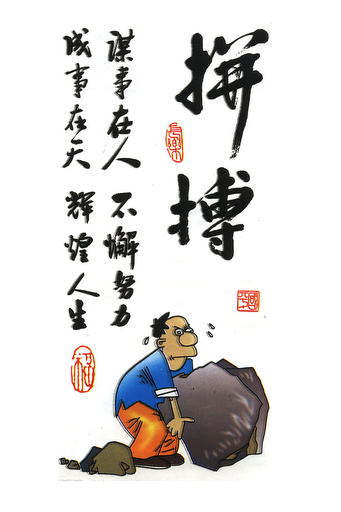 拼搏
谋事在人
成事在天
不懈努力
辉煌人生